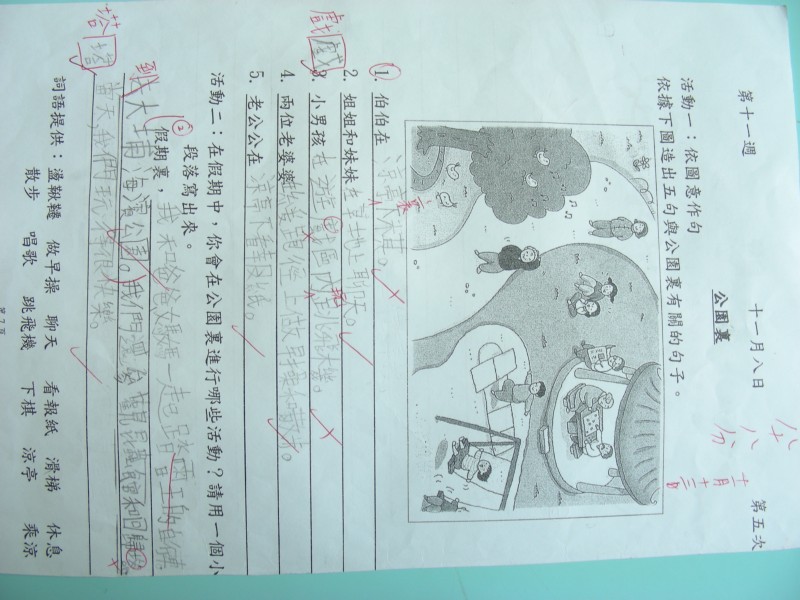 第十一週 十一月八日 第五次
公園裏
八十八分
十一月十三日
活動一：依圖意作句
依據下圖造出五句與公園裏有關的句子。
1. 伯伯在涼亭下棋。
裏
2. 姐姐和妹妹在草地上聊天。
3. 小男孩在遊戲區內跳飛機。
戲
4. 兩位老婆婆在上做早操和散步。
5. 老公公在涼亭下看報紙。
活動二：在假期中，你會在公園裏進行哪些活動？請用一個小
段落寫出來。
假期裏，我和爸爸媽媽一起踏
到大埔海濱公園。我們還
當天，我們玩得很快樂。
詞語提供：盪鞦韆 做早操 聊天 看報紙 滑梯 休息
散步 唱歌 跳飛機 下棋 涼亭 乘涼